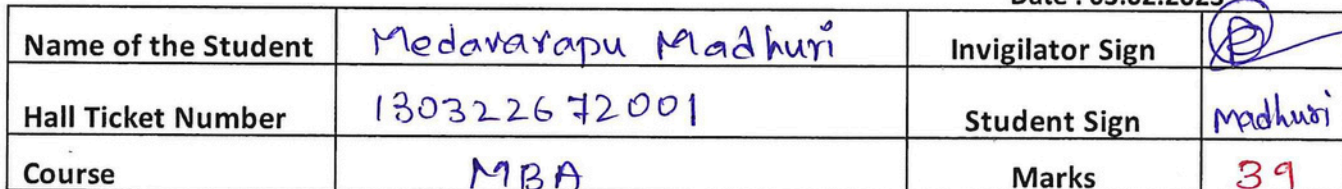 Name of the Student Medavarapu Madhuri Invigilator Sign
Hall Ticket Number 130322672001 Student Sign Madhuri
Course MBA Marks 39